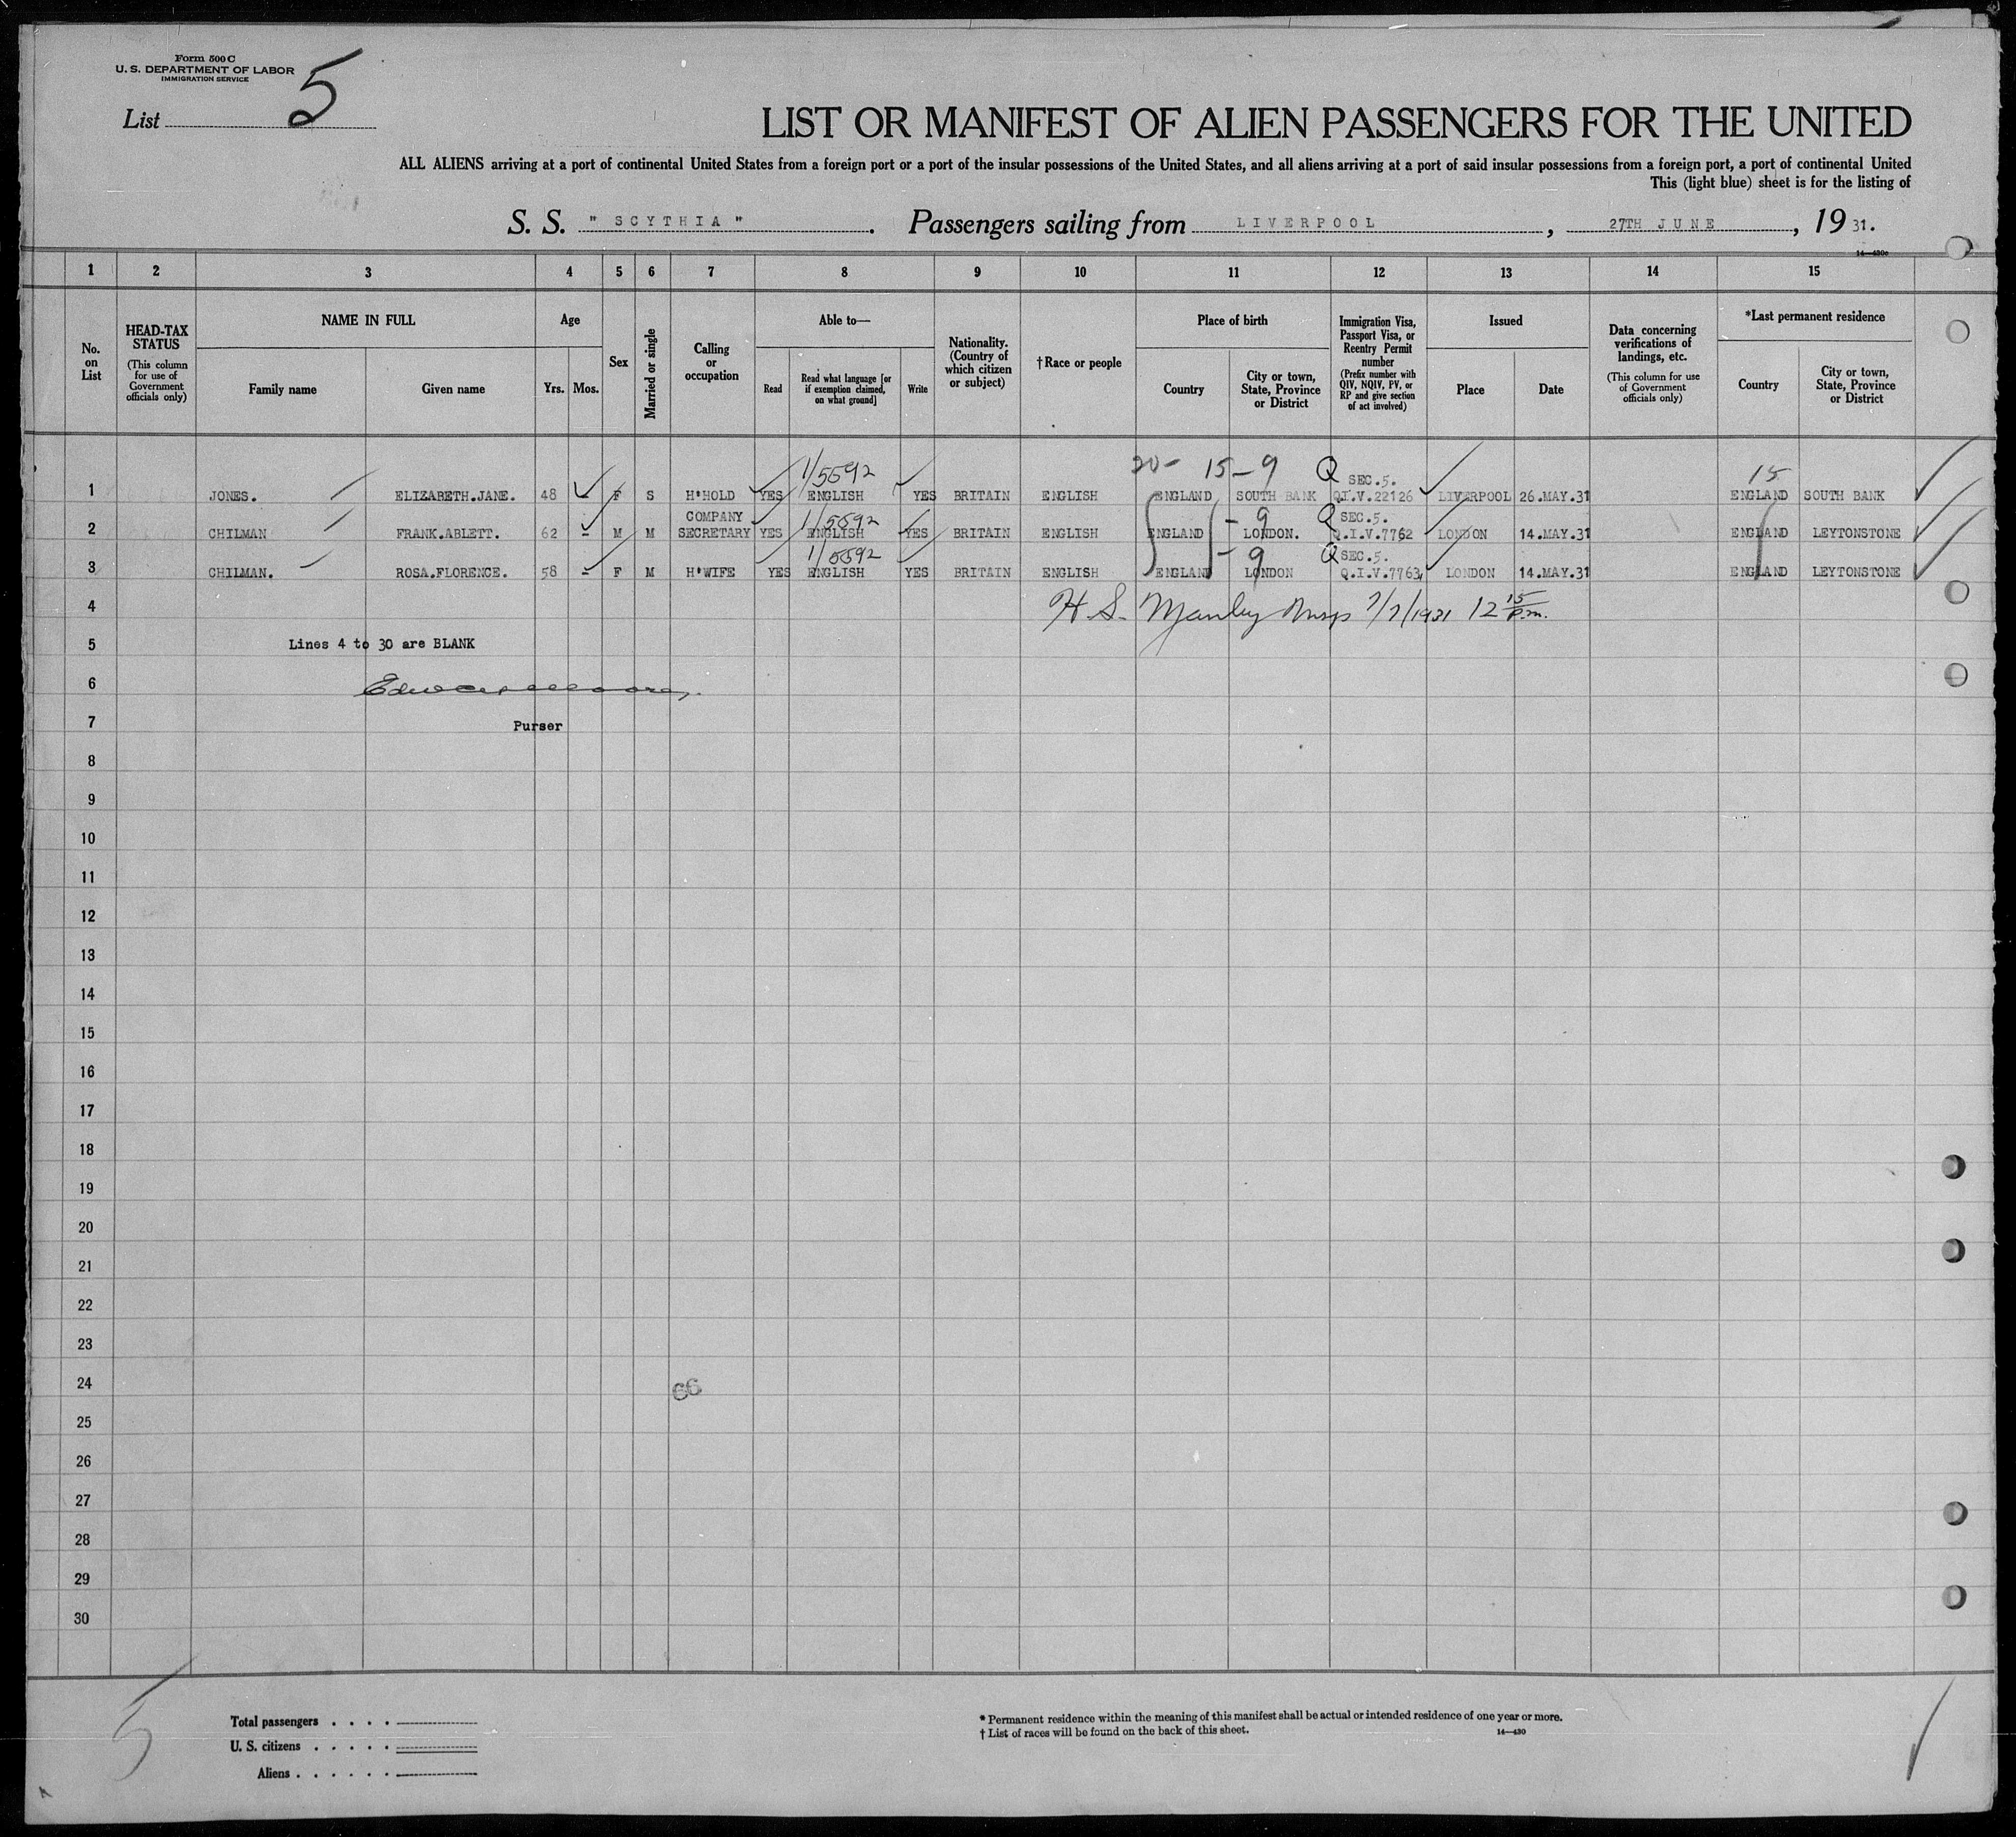 Form 500 C
U. S. DEPARTMENT OF LABOR
IMMIGRATION SERVICE
List 5
LIST OR MANIFEST OF ALIEN PASSENGERS FOR THE UNITED
ALL ALIENS arriving at a port of continental United States from a foreign port or a port of the insular possessions of the United States, and all aliens arriving at a port of said insular possessions from a foreign port, a port of continental United
This (light blue) sheet is for the listing of
S. S. "SCYTHIA". Passengers sailing from LIVERPOOL, 27TH JUNE, 1931.
14—430c
1 2 3 4 5 6 7 8 9 10 11 12 13 14 15
No. on List
HEAD-TAX STATUS
(This column for use of Government officials only)
NAME IN FULL
Family name
Given name
Age
Yrs.
Mos.
Sex
Married or single
Calling or occupation
Able to—
Read
Read what language [or if exemption claimed, on what ground]
Write
Nationality. (Country of which citizen or subject)
†Race or people
Place of birth
Country
City or town, State, Province or District
Immigration Visa, Passport Visa, or Reentry Permit number
(Prefix number with QIV, NQIV, PV, or RP and give section of act involved)
Issued
Place
Date
Data concerning verifications of landings, etc.
(This column for use of Government officials only)
*Last permanent residence
Country
City or town, State, Province or District
1/5592 20- 15-9 Q SEC.5. 15
1 JONES. ELIZABETH.JANE. 48 - F S H'HOLD YES ENGLISH YES BRITAIN ENGLISH ENGLAND SOUTH BANK Q.I.V.22126 LIVERPOOL 26.MAY.31 ENGLAND SOUTH BANK
COMPANY 1/5592 - 9 Q SEC.5.
2 CHILMAN FRANK.ABLETT. 62 - M M SECRETARY YES ENGLISH YES BRITAIN ENGLISH ENGLAND LONDON. Q.I.V.7762 LONDON 14.MAY.31 ENGLAND LEYTONSTONE
1/5592 - 9 Q SEC.5.
3 CHILMAN. ROSA.FLORENCE. 58 - F M H'WIFE YES ENGLISH YES BRITAIN ENGLISH ENGLAND LONDON Q.I.V.7763 LONDON 14.MAY.31 ENGLAND LEYTONSTONE
4 H. S. Manley Insp 7/7/1931 12 15 p.m.
5 Lines 4 to 30 are BLANK
6
7 Purser
8
9
10
11
12
13
14
15
16
17
18
19
20
21
22
23
24 66
25
26
27
28
29
30
5
Total passengers . . . .
U. S. citizens . . . . .
Aliens . . . . . .
* Permanent residence within the meaning of this manifest shall be actual or intended residence of one year or more.
† List of races will be found on the back of this sheet. 14—430